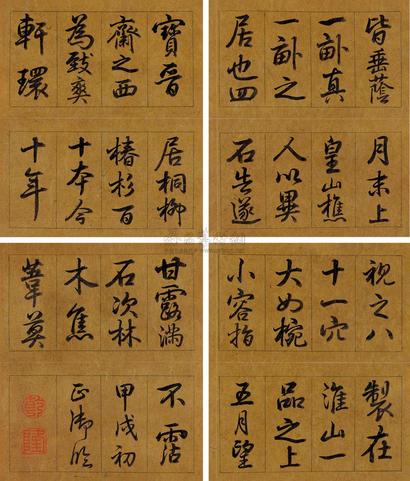 寶晉
齋之西
為致爽
軒環
居桐柳
椿杉百
十本今
十年
皆垂蔭
一畝真
一畝之
居也四
月末上
皇山樵
人以異
石告遂
視之八
十一穴
大如椀
小容指
製在
淮山一
品之上
五月望
甘露滿
石次林
木焦
葦莫
不霑
甲戌初